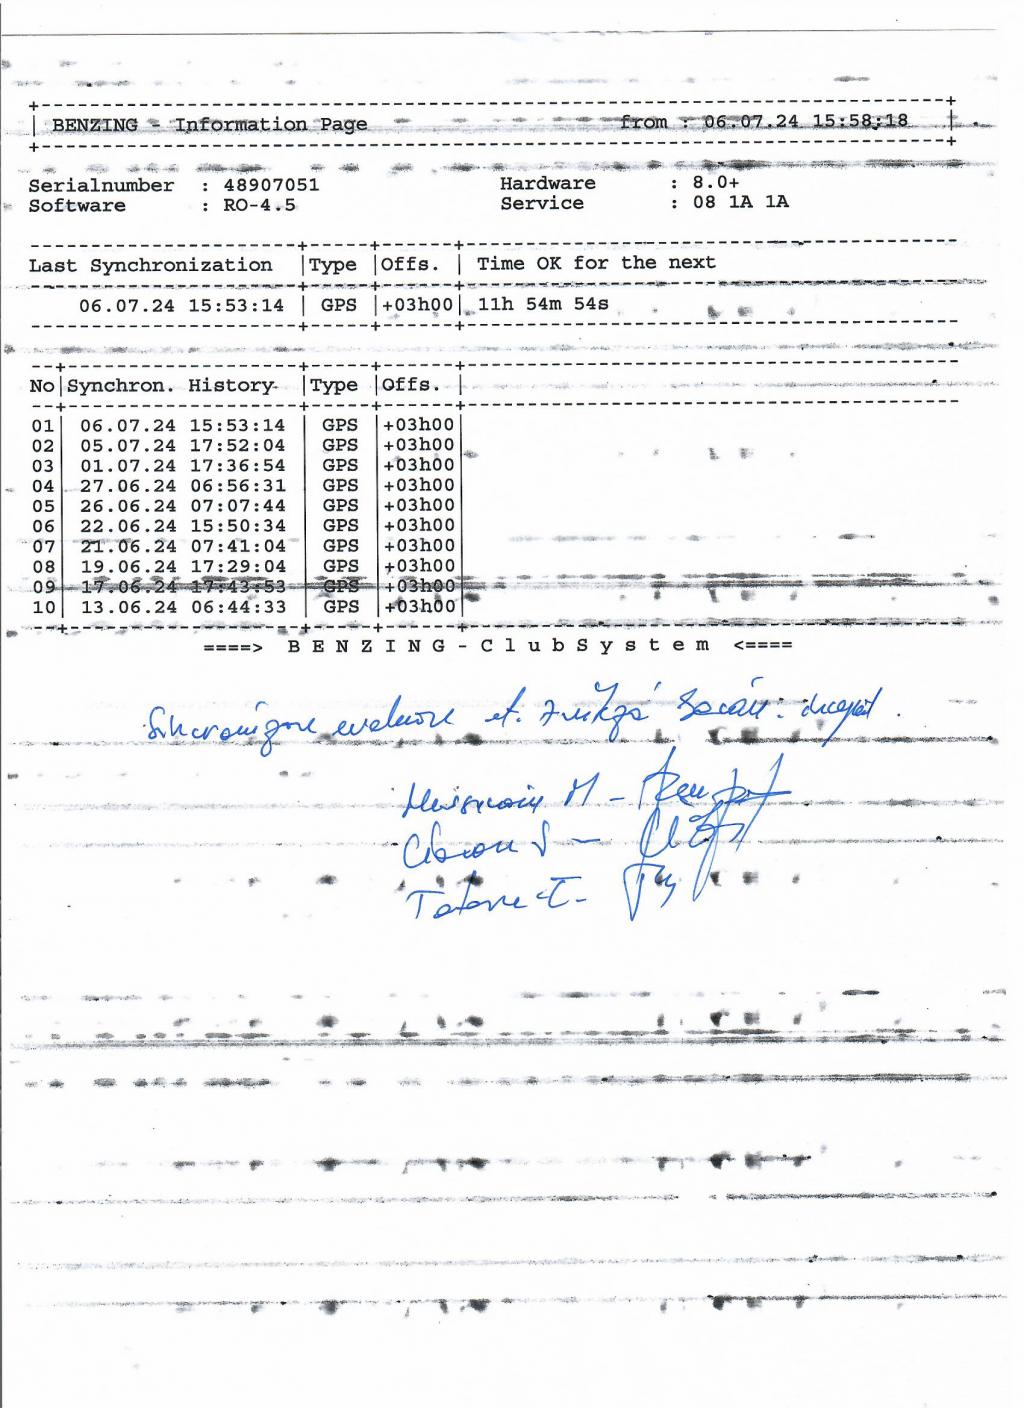 BENZING - Information Page from : 06.07.24 15:58:18
Serialnumber : 48907051 Hardware : 8.0+
Software : RO-4.5 Service : 08 1A 1A
Last Synchronization |Type |Offs. | Time OK for the next
06.07.24 15:53:14 | GPS |+03h00| 11h 54m 54s
No|Synchron. History |Type |Offs. |
01| 06.07.24 15:53:14 | GPS |+03h00|
02| 05.07.24 17:52:04 | GPS |+03h00|
03| 01.07.24 17:36:54 | GPS |+03h00|
04| 27.06.24 06:56:31 | GPS |+03h00|
05| 26.06.24 07:07:44 | GPS |+03h00|
06| 22.06.24 15:50:34 | GPS |+03h00|
07| 21.06.24 07:41:04 | GPS |+03h00|
08| 19.06.24 17:29:04 | GPS |+03h00|
09| 17.06.24 17:43:53 | GPS |+03h00|
10| 13.06.24 06:44:33 | GPS |+03h00|
====> B E N Z I N G - C l u b S y s t e m <====